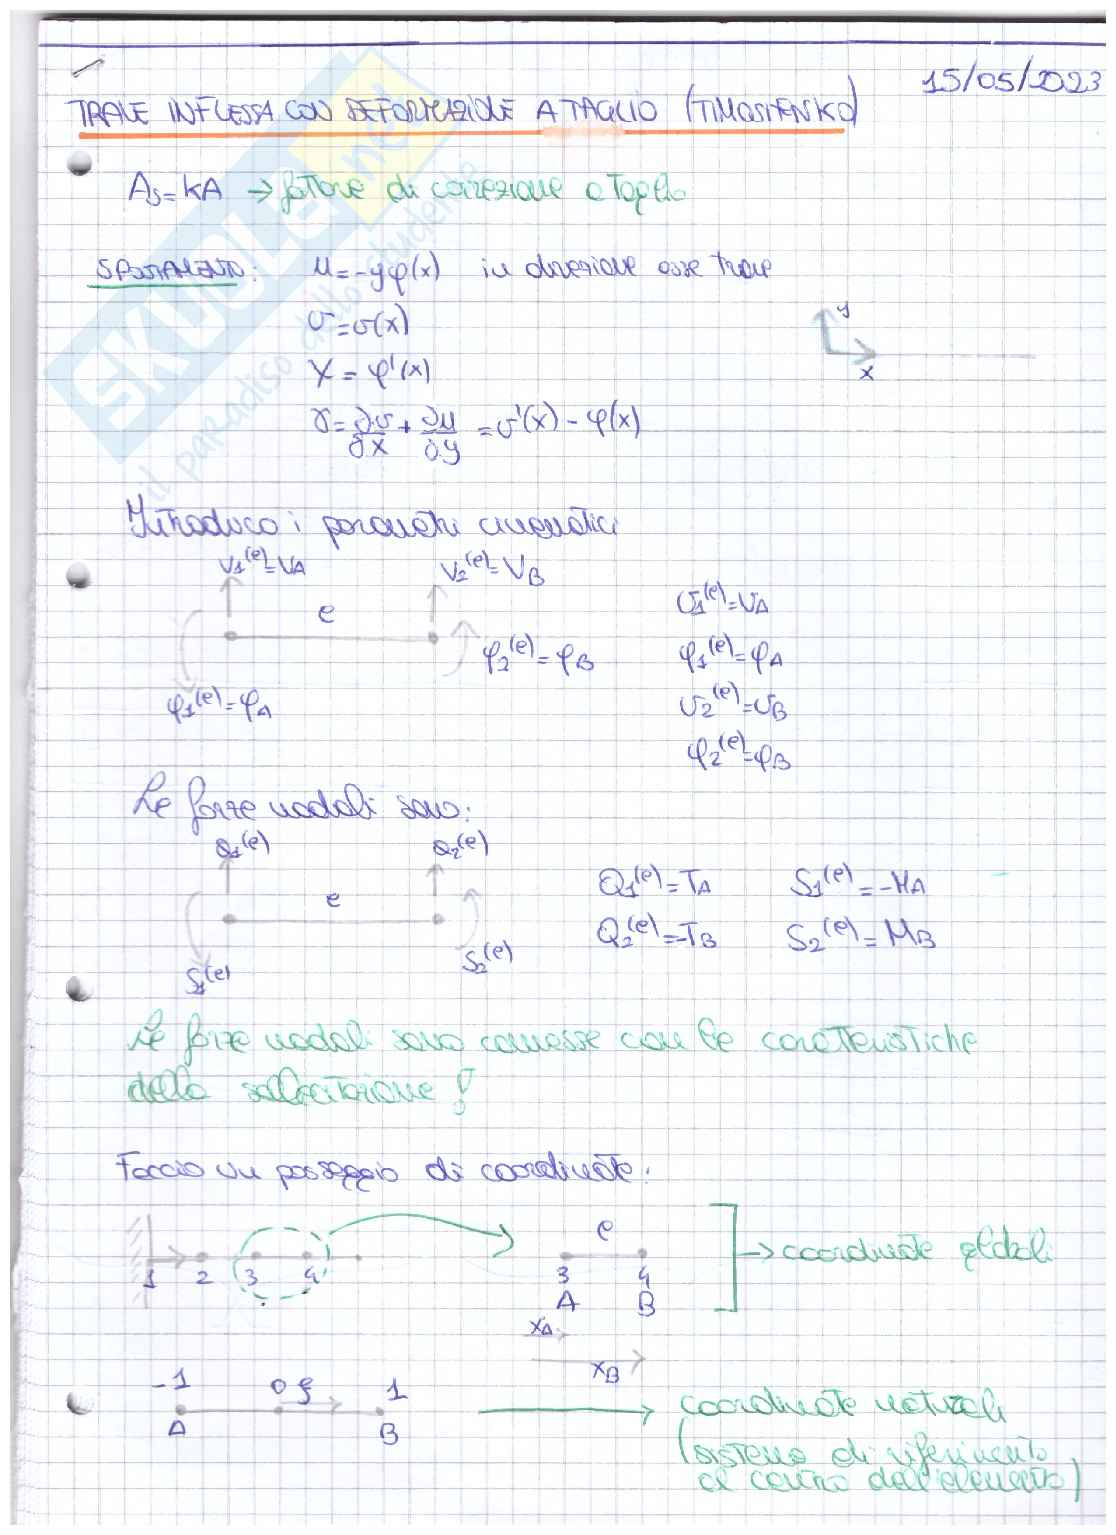 15/05/2023
TRAVE INFLESSA CON DEFORMAZIONE A TAGLIO (TIMOSHENKO)
As=kA → fattore di correzione a taglio
SPOSTAMENTO: u=-yφ(x) in direzione asse trave
v=v(x)
χ=φ'(x)
γ=∂v/∂x+∂u/∂y=v'(x)-φ(x)
y
x
Introduco i parametri cinematici
v1(e)=vA
v2(e)=vB
e
φ2(e)=φB
φ1(e)=φA
v1(e)=vA
φ1(e)=φA
v2(e)=vB
φ2(e)=φB
Le forze nodali sono:
Q1(e)
Q2(e)
e
S1(e)
S2(e)
Q1(e)=TA S1(e)=-MA
Q2(e)=-TB S2(e)=MB
Le forze nodali sono connesse con le caratteristiche
della sollecitazione!
Faccio un passaggio di coordinate:
1 2 3 4
e
3 4
A B
xA
xB
→ coordinate globali
-1 0 ξ 1
A B
coordinate naturali
(sistema di riferimento
al centro dell'elemento)
SKUOLA.net
il paradiso dello studente